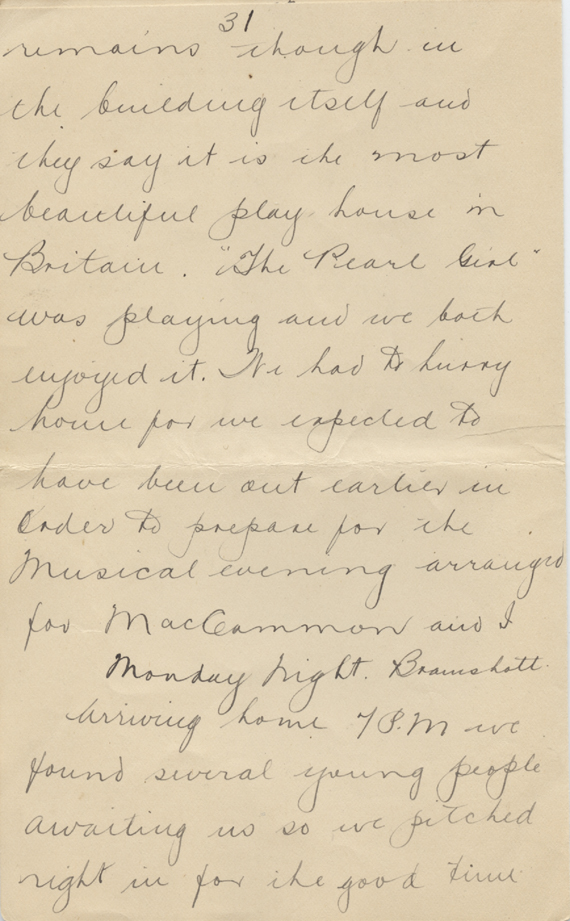 31
remains though in
the building itself and
they say it is the most
beautiful play house in
Britain. "The Pearl Girl"
was playing and we both
enjoyed it. We had to hurry
home for we expected to
have been out earlier in
order to prepare for the
Musical evening arranged
for MacCammon and I
Monday Night. Bramshott.
Arriving home 7 P.M we
found several young people
awaiting us so we pitched
right in for the good time